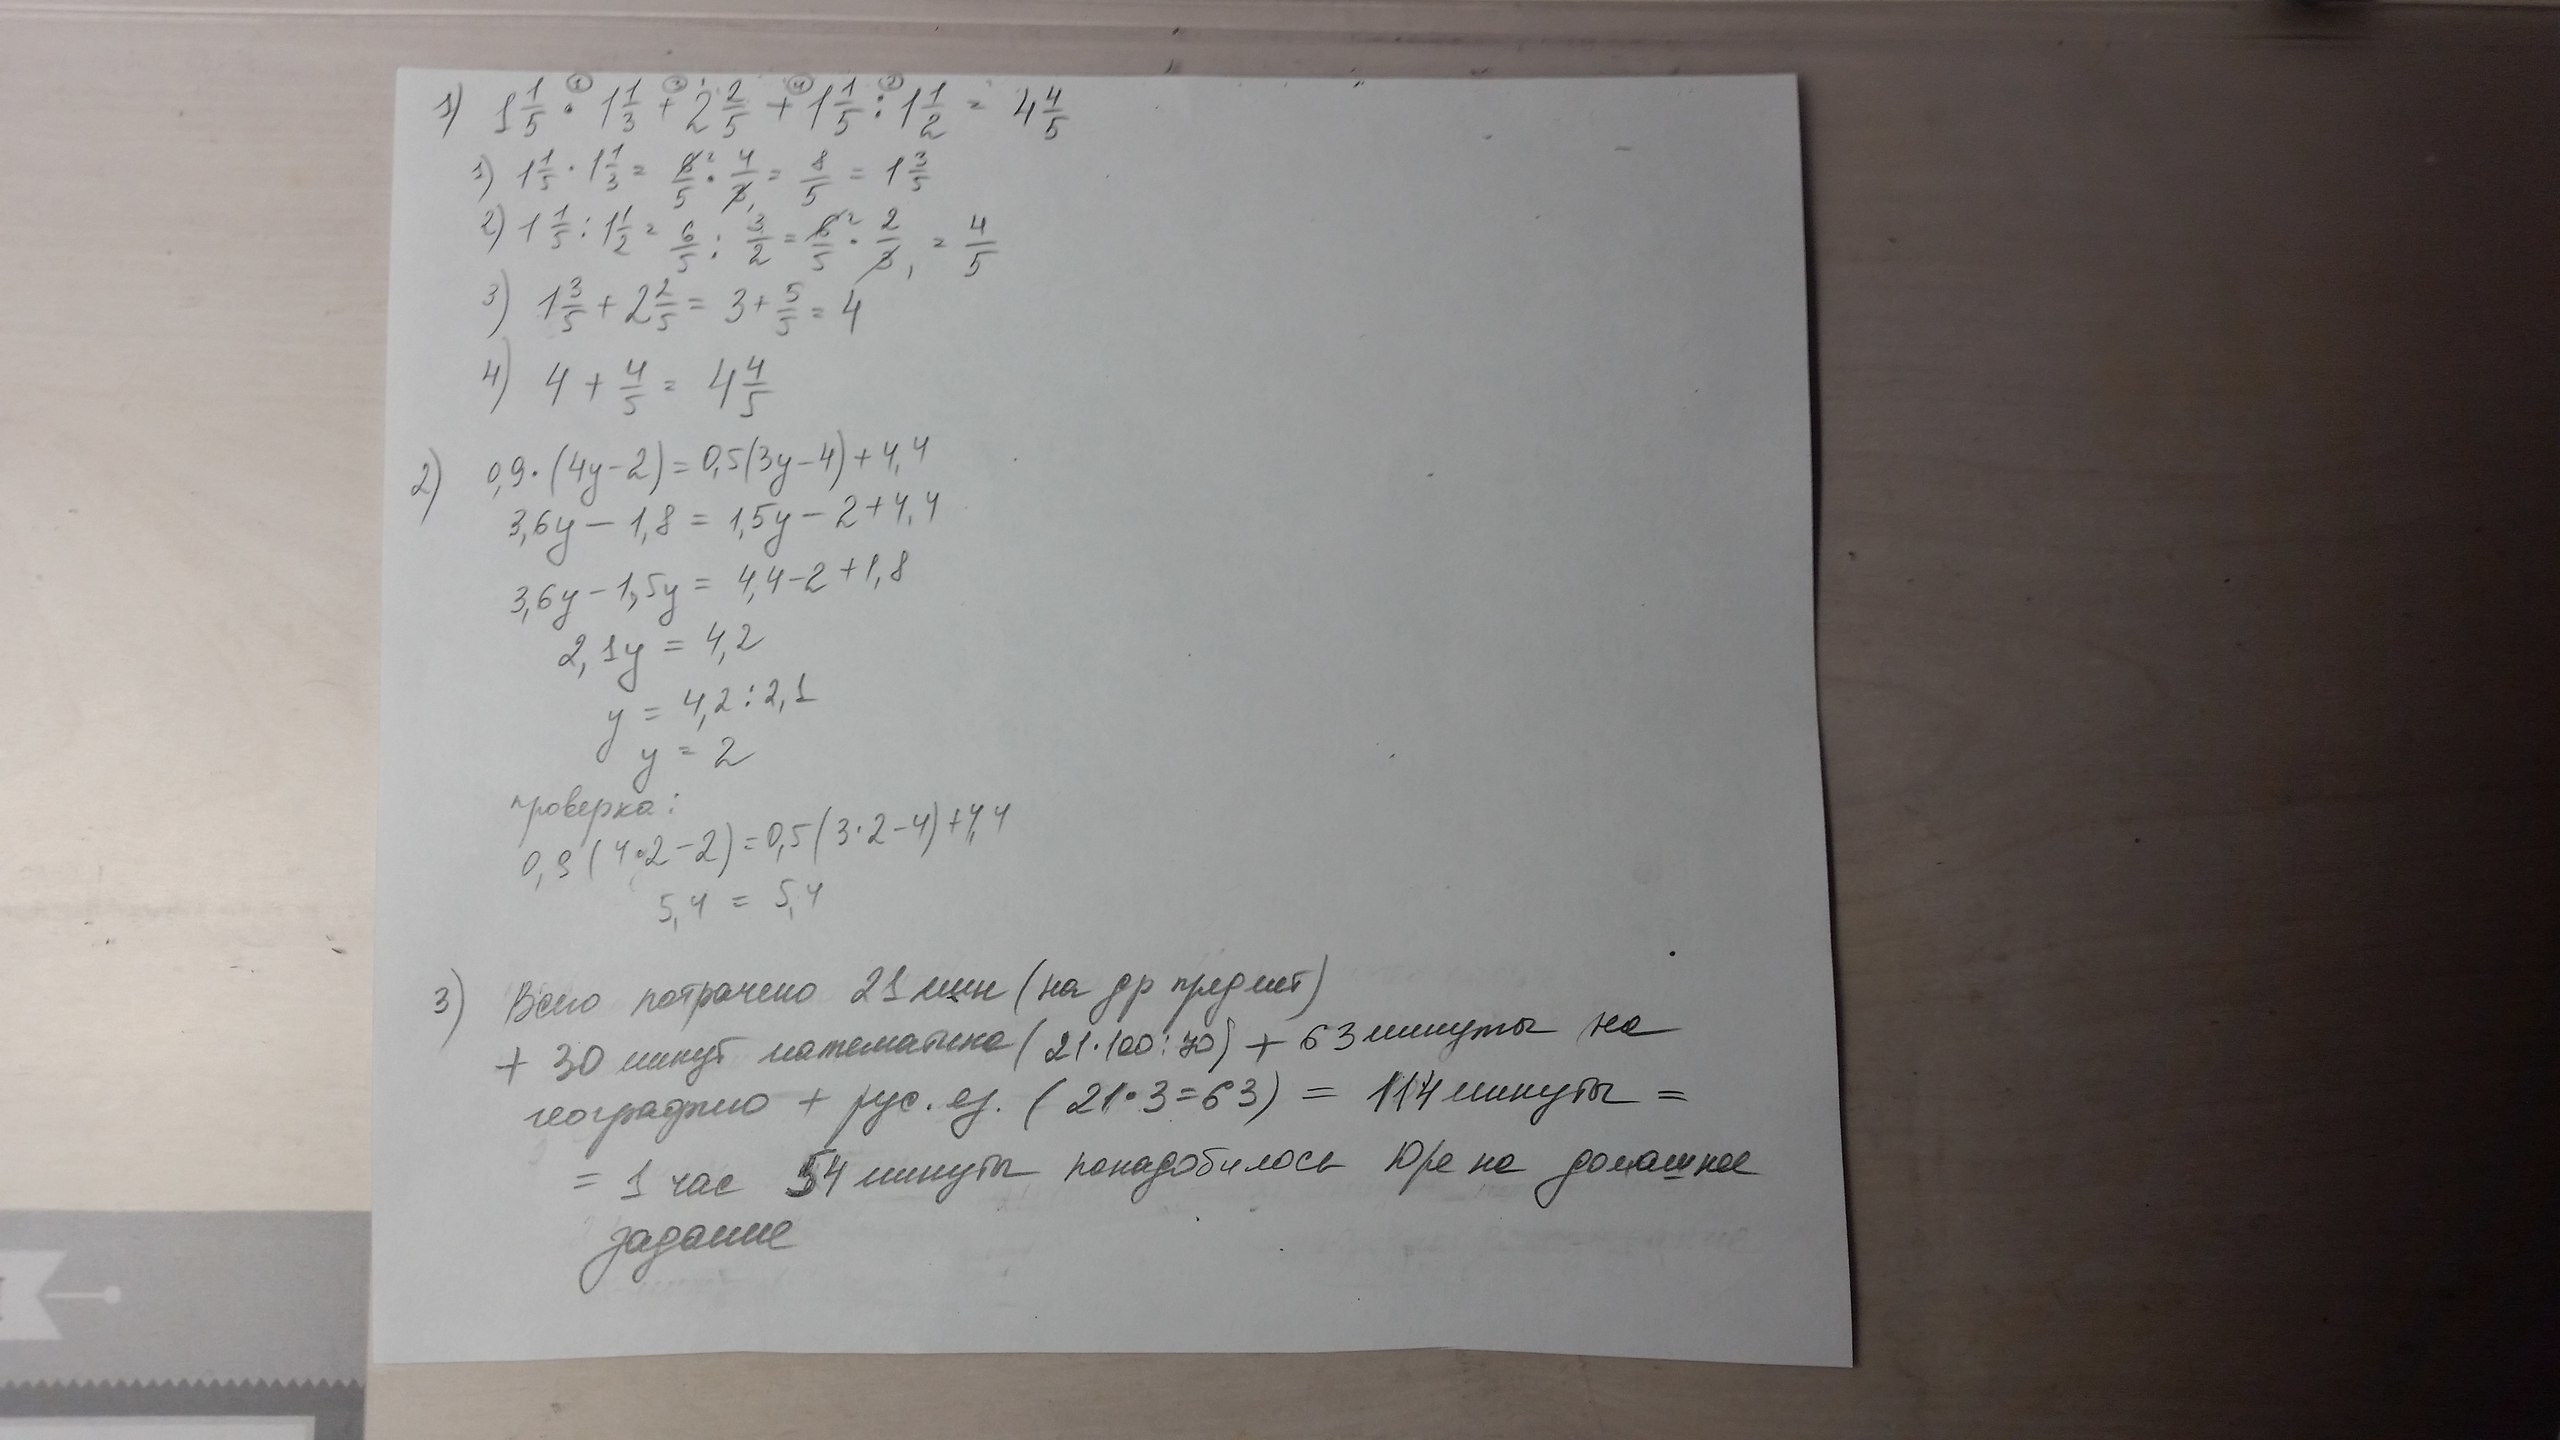 1) 1 1/5 · 1 1/3 + 2 2/5 + 1 1/5 : 1 1/2 = 4 4/5
1) 1 1/5 · 1 1/3 = 6²/5 · 4/3₁ = 8/5 = 1 3/5
2) 1 1/5 : 1 1/2 = 6/5 : 3/2 = 6²/5 · 2/3₁ = 4/5
3) 1 3/5 + 2 2/5 = 3 + 5/5 = 4
4) 4 + 4/5 = 4 4/5
2) 0,9·(4y-2)=0,5(3y-4)+4,4
3,6y - 1,8 = 1,5y - 2 + 4,4
3,6y - 1,5y = 4,4-2+1,8
2,1y = 4,2
y = 4,2:2,1
y = 2
проверка:
0,9(4·2-2)=0,5(3·2-4)+4,4
5,4 = 5,4
3) Всего потрачено 21 мин (на др предмет)
+ 30 минут математика (21·100:70) + 63 минуты на
географию + рус. яз. (21·3=63) = 114 минуты =
= 1 час 54 минуты понадобилось Юре на домашнее
задание